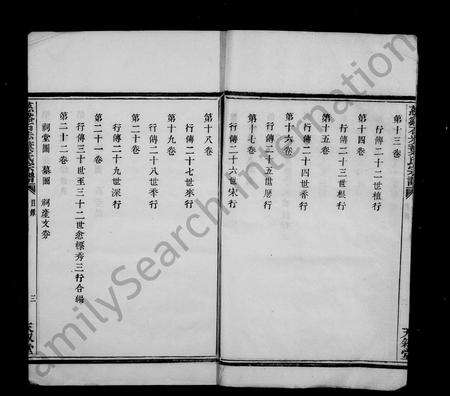 第十三卷
行傳二十二世植行
第十四卷
行傳二十三世根行
第十五卷
行傳二十四世香行
第十六卷
行傳二十五世
第十七卷
行傳二十六世
第十八卷
行傳二十七世來行
第十九卷
行傳二十八世香行
第二十卷
行傳二十九世深行
第二十一卷
行傳三十世至三十二世愈極秀三行合編
第二十二卷
祠堂圖 墓圖 祠產文券
目錄
三
天敘堂
FamilySearch International